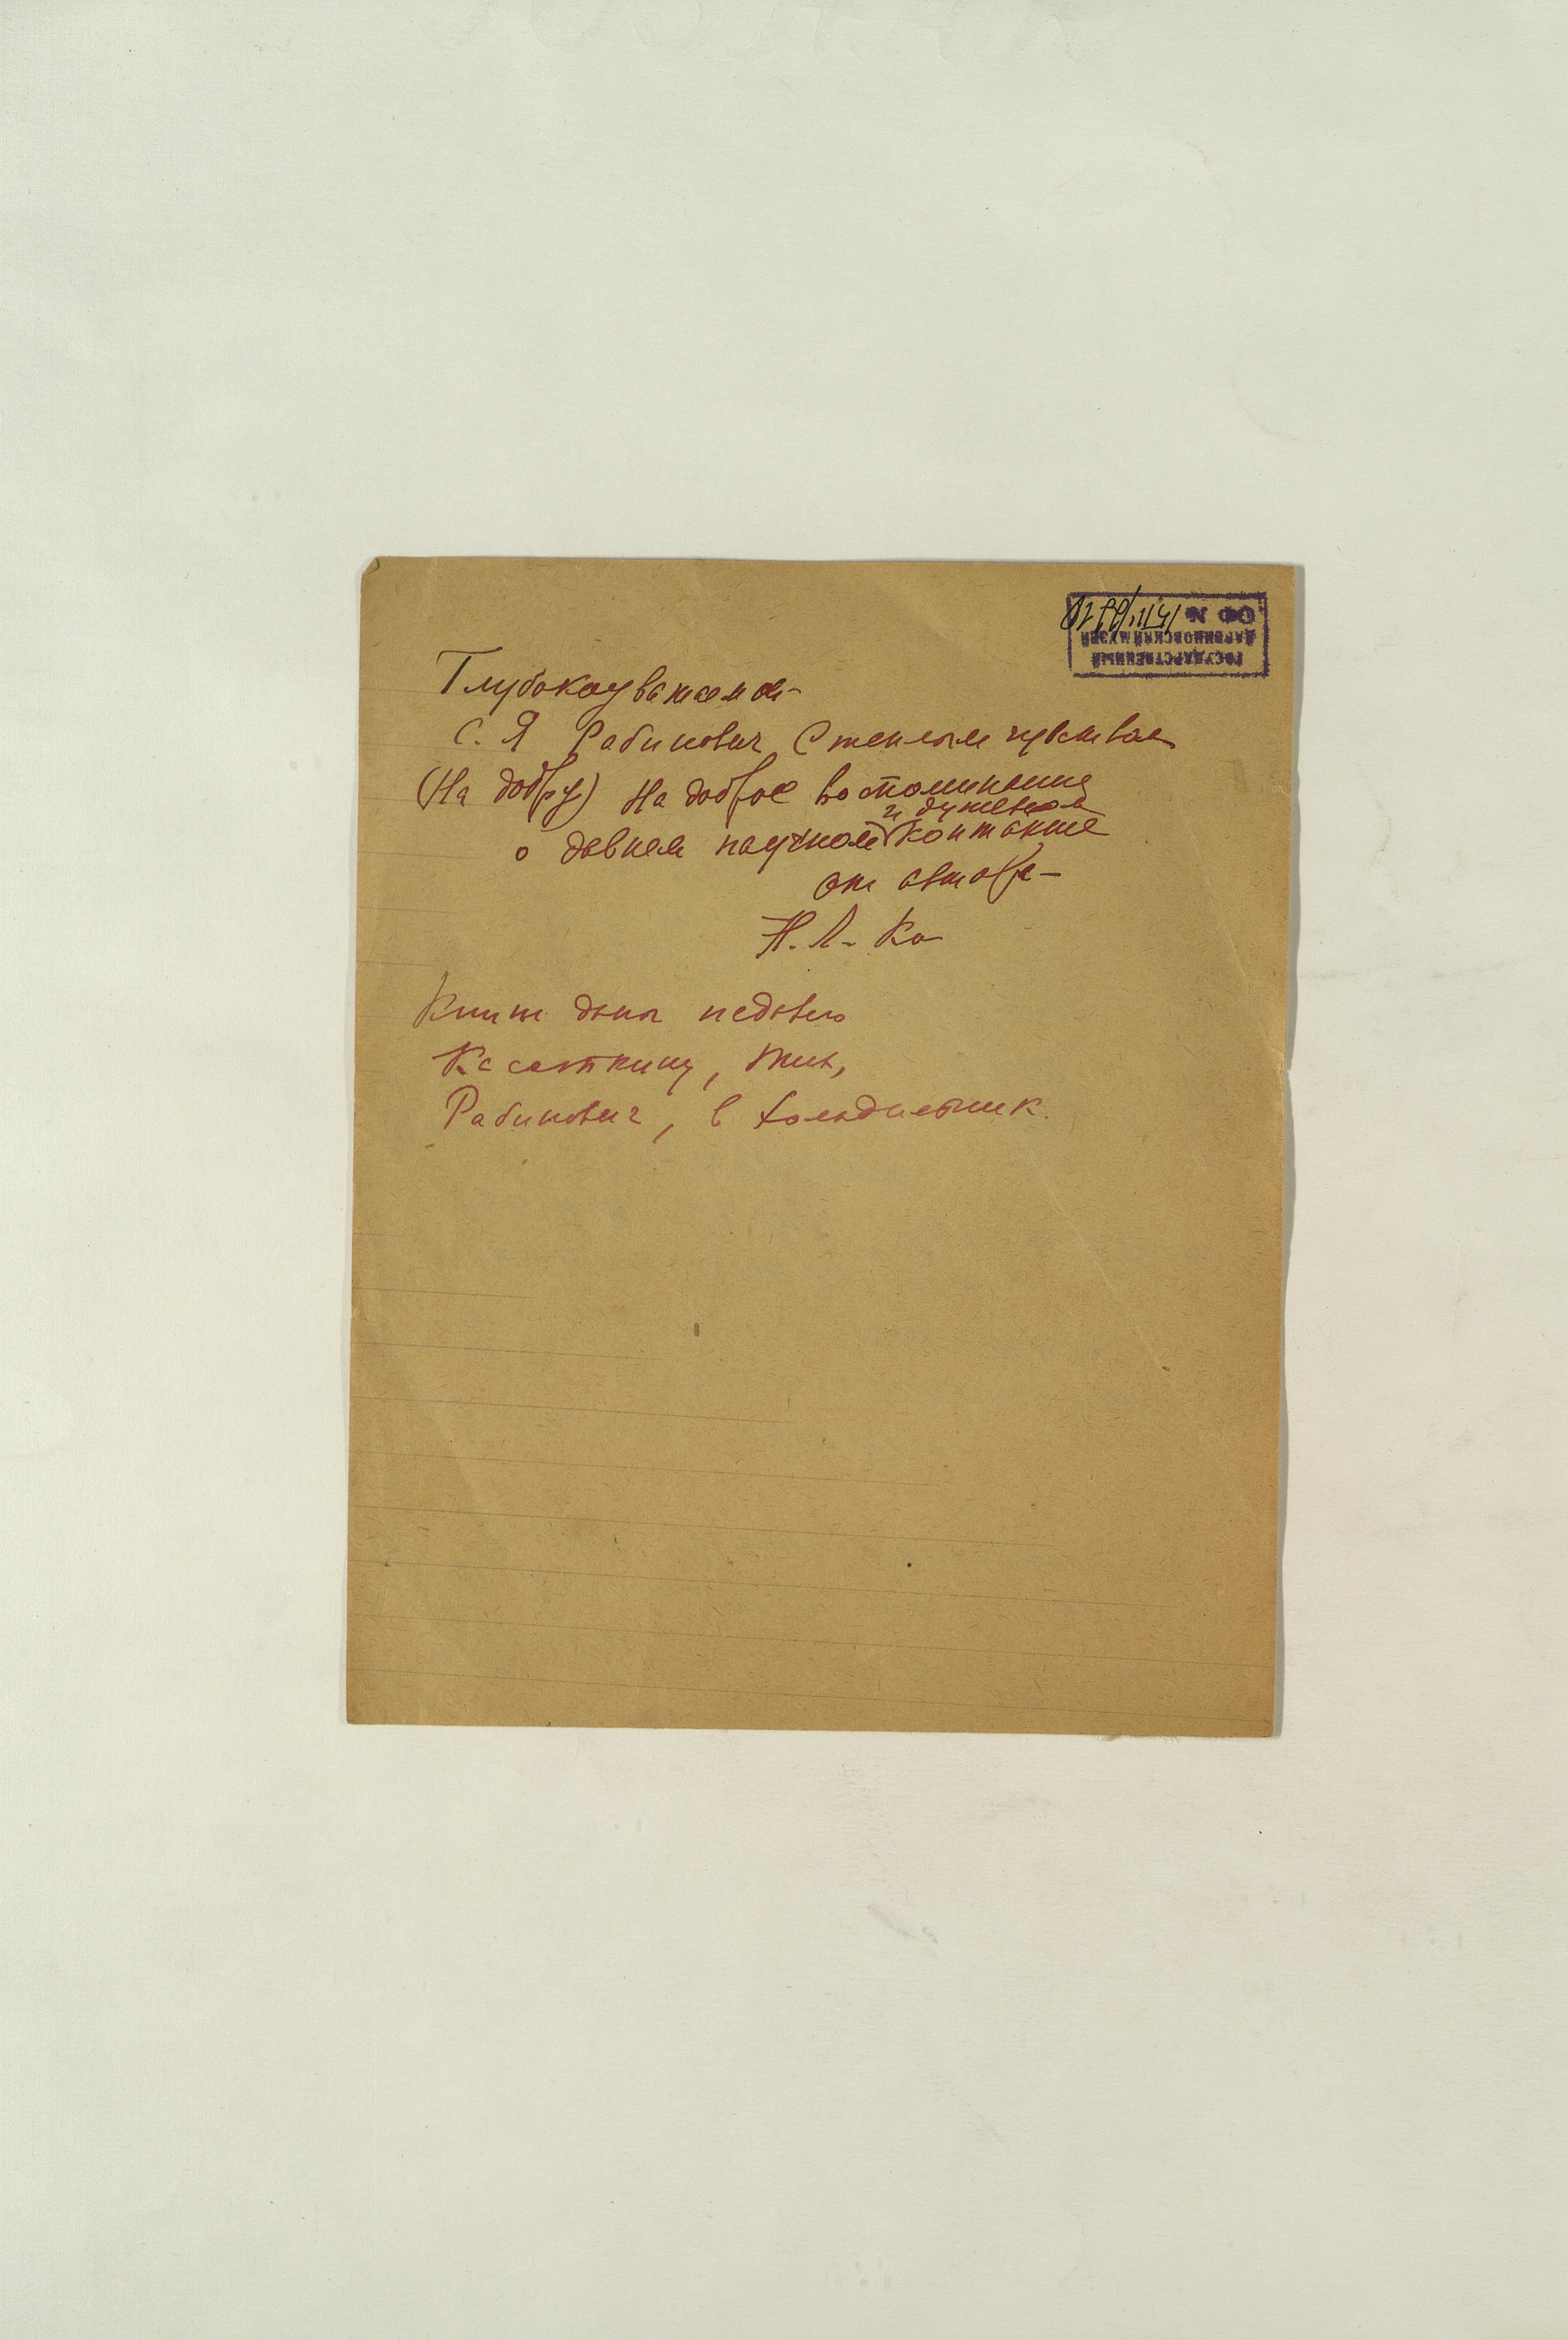 ГОСУДАРСТВЕННЫЙ
ДАРВИНОВСКИЙ МУЗЕЙ
ОФ №
Глубокоуважаемой
С. Я Рабинович С теплым чувством
(На добру) На доброе воспоминание
и душевном
о давнем научном контакте
от автора
Н. Л. Ко
Книги даны недавно
Касаткину,
Рабинович, в